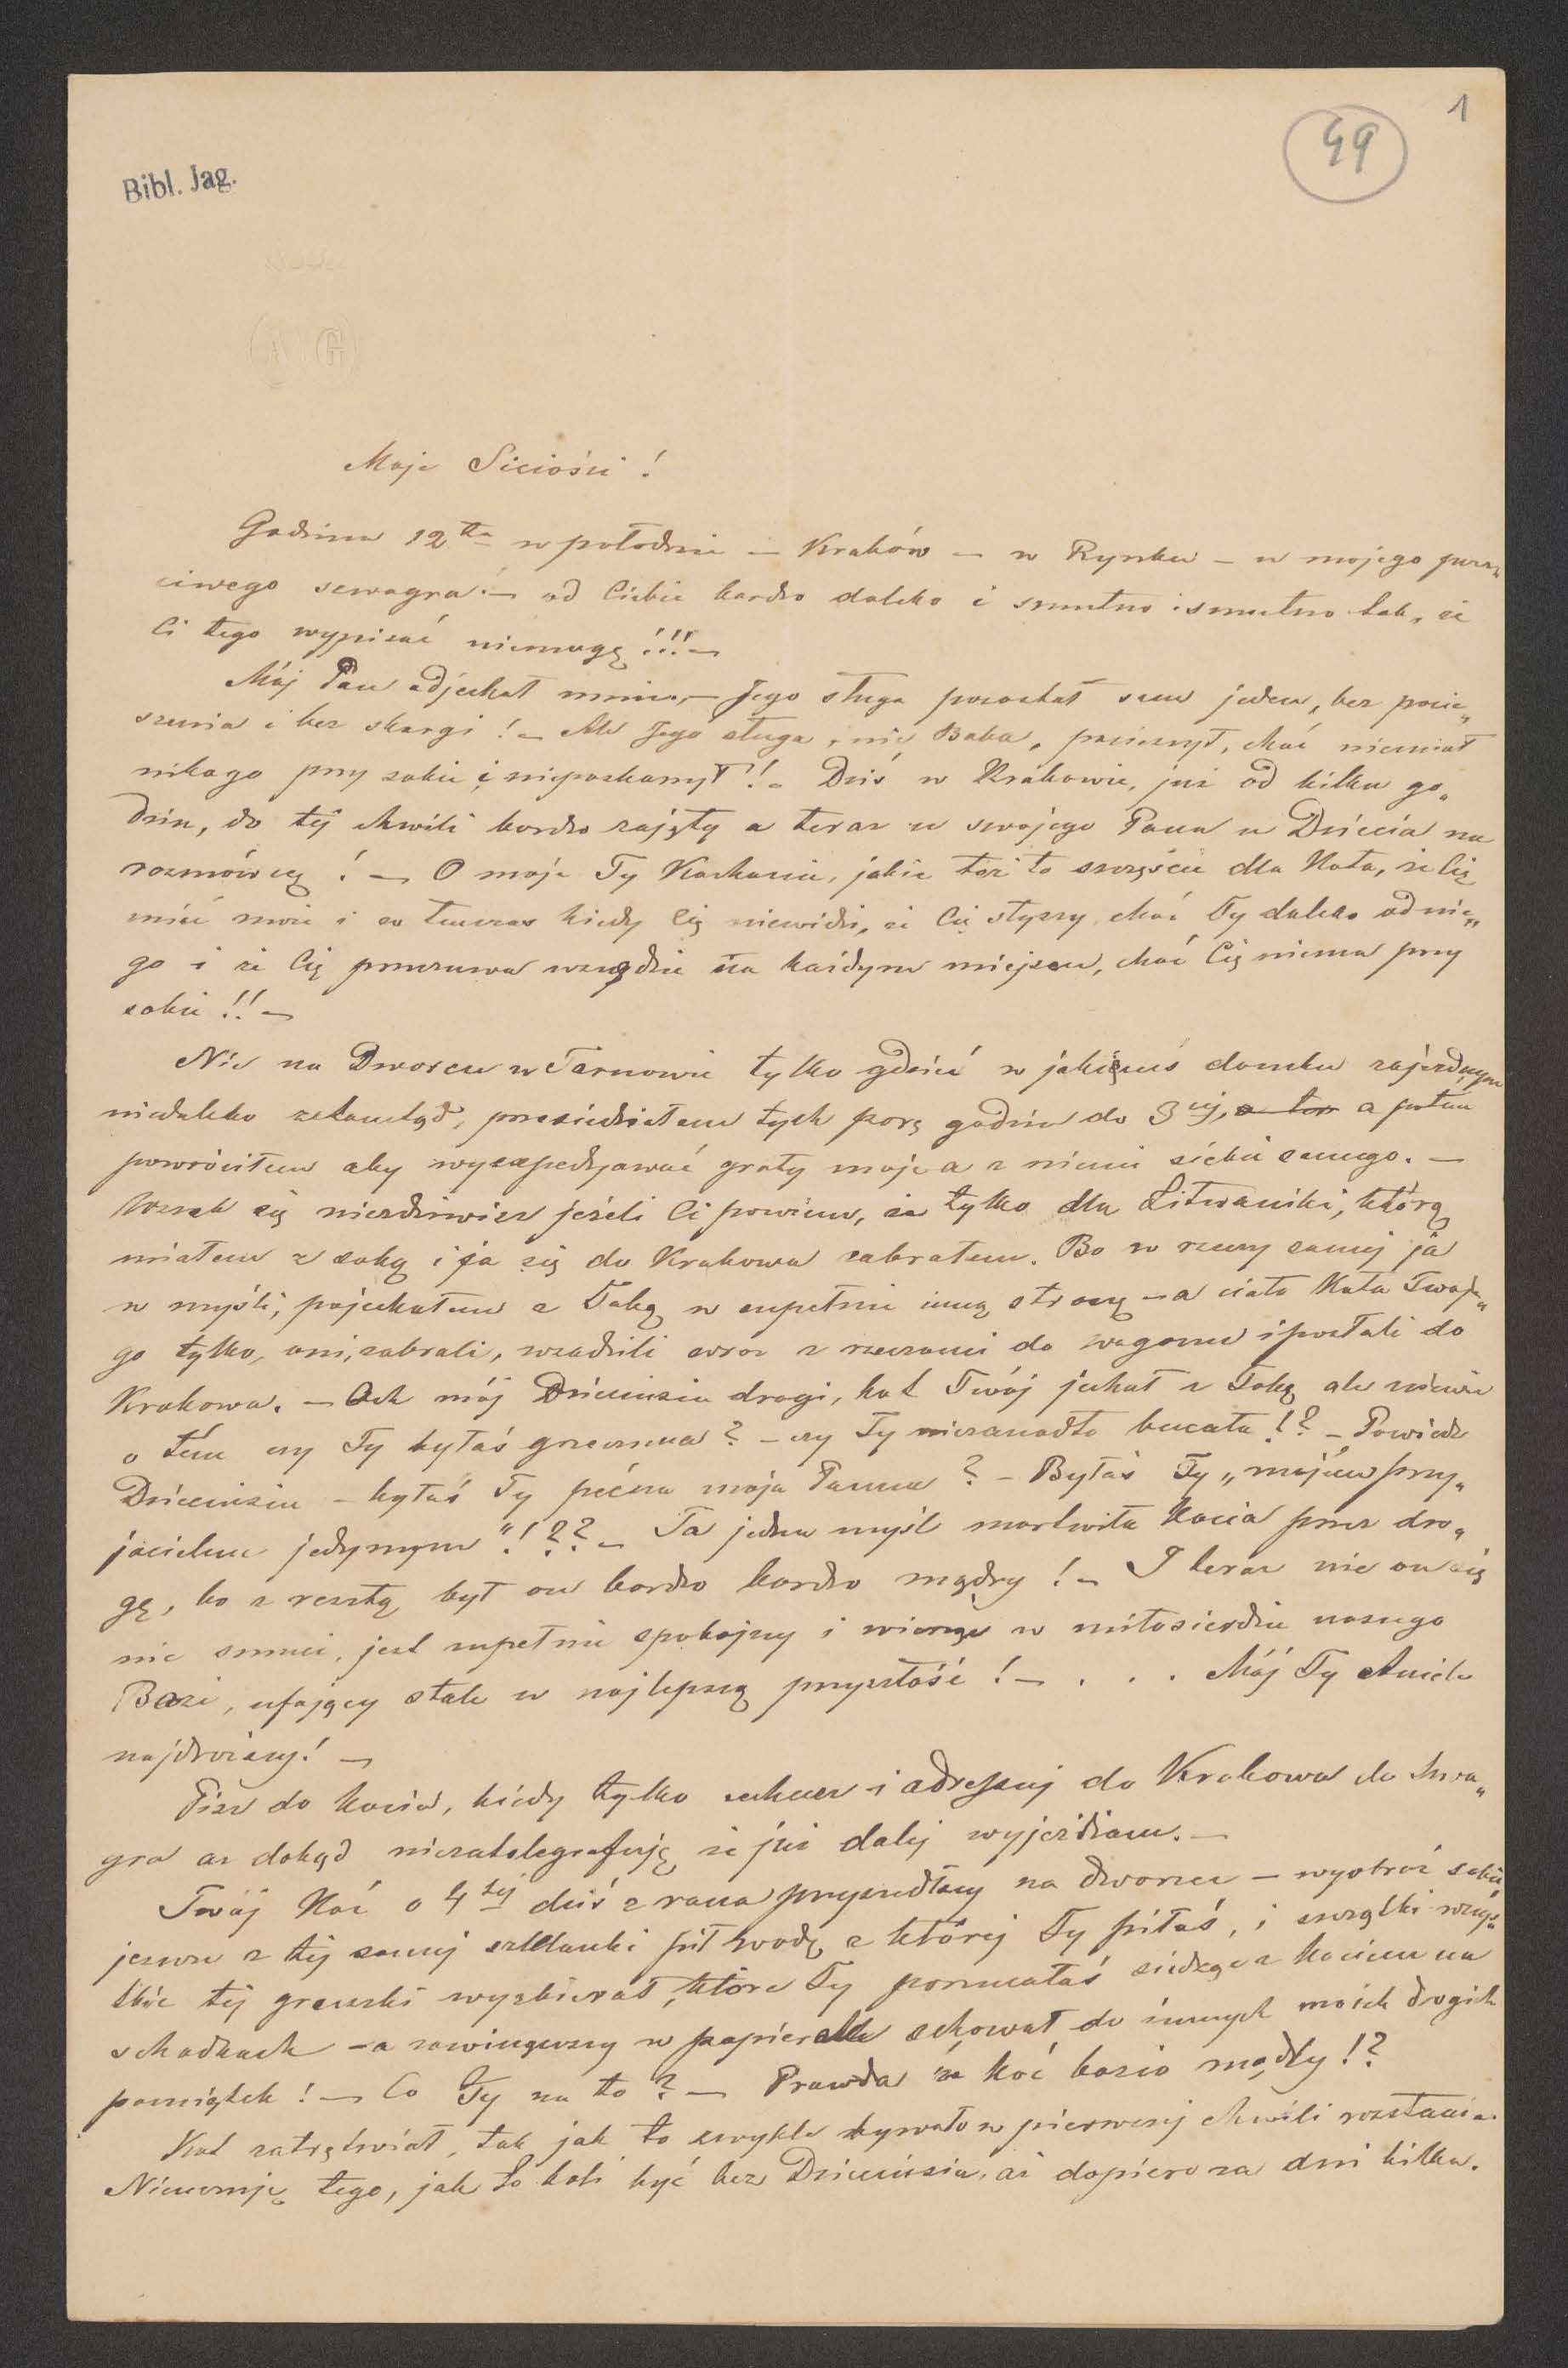 1
49
Bibl. Jag.
Moje Siciości!
Godzina 12ta w południe – Kraków – w Rynku – u mojego pocz„
ciwego szwagra! – od Ciebie bardzo daleko i smutno i smutno tak, że
Ci tego wypisać niemogę!!! –
Mój Pan odjechał mnie, – Jego sługa pozostał sam jeden, bez pocie„
szenia i bez skargi! – Ale Jego sługa, nie Baba, przeżył, choć niemiał
nikogo przy sobie i niezaskarżył! – Dziś w Krakowie, już od kilku go„
dzin, do tej chwili bardzo zajęty a teraz u swojego Pana u Dziecia na
rozmówcę! – O moje Ty Kochanie, jakie też to szczęście dla Kota, że Cię
mieć może i w tenczas kiedy Cię niewidzi, że Cię słyszy choć Ty daleko od nie„
go i że Cię przeczuwa wszędzie na każdym miejscu, choć Cię niema przy
sobie!! –
Nie na Dworcu w Tarnowie tylko gdzieś w jakiemś domku zajezdnym
niedaleko ztamtąd, przesiedziałem tych parę godzin do 3ciej, a potem
powróciłem aby wyexpedjować graty moje a z niemi siebie samego. –
Wszak się niezdziwisz jeżeli Ci powiem, że tylko dla Litwaniki, którą
miałem z sobą i ja się do Krakowa zabrałem. Bo w rzeczy samej ja
w myśli, pojechałem z Tobą w zupełnie inną stronę – a ciało Kota Twoje„
go tylko, oni, zabrali, wsadzili wraz z rzeczami do wagonu i posłali do
Krakowa. – Ach mój Dzieciusiu drogi, kot Twój jechał z Tobą ale niewie
o tem czy Ty byłaś grzeczna? – czy Ty niezanadto beczała!? – Powiedz
Dzieciusiu – byłaś Ty pićna moja Panna? – Byłaś Ty „mojem przy„
jacielem jedynym"!?? – Ta jedna myśl martwiła Kocia przez dro„
gę, bo z resztą był on bardzo bardzo mądry! – I teraz nie on się
nic smuci, jest zupełnie spokojny i wierzy w miłosierdzie naszego
Bozi, ufający stale w najlepszą przyszłość! – . . . Mój Ty Aniele
najdroższy! –
Pisz do Kocia, kiedy tylko zechcesz i adressuj do Krakowa do szwa„
gra aż dokąd niezatelegrafuję że już dalej wyjeżdżam. –
Twój Koć o 4tej dziś z rana przyszedłszy na dworzec – wyobraź sobie
jeszcze z tej samej szklanki pił wodę z której Ty piłaś, i szczątki wszys„
tkie tej gruszki wyzbierał, które Ty porzucałaś siedząc z Kociem na
schodkach – a zawinąwszy w papierek schował do innych moich drogich
pamiątek! – Co Ty na to? – Prawda że Koć bazio mądly!?
Kot zatrętwiał, tak jak to zwykle bywało w pierwszej chwili rozstania.
Nieczuję tego, jak to boli być bez Dzieciusia, aż dopiero za dni kilka.